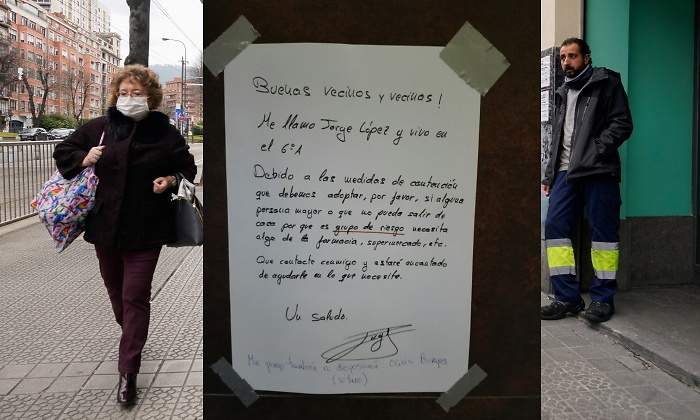 Buenas vecinos y vecinas!
Me llamo Jorge López y vivo en
el 6º A
Debido a las medidas de contención
que debemos adoptar, por favor, si alguna
persona mayor o que no pueda salir de
casa por que es grupo de riesgo necesita
algo de la farmacia, supermercado, etc.
Que contacte conmigo y estaré encantado
de ayudarte en lo que necesite.
Un saludo.
Me pongo también a disposición